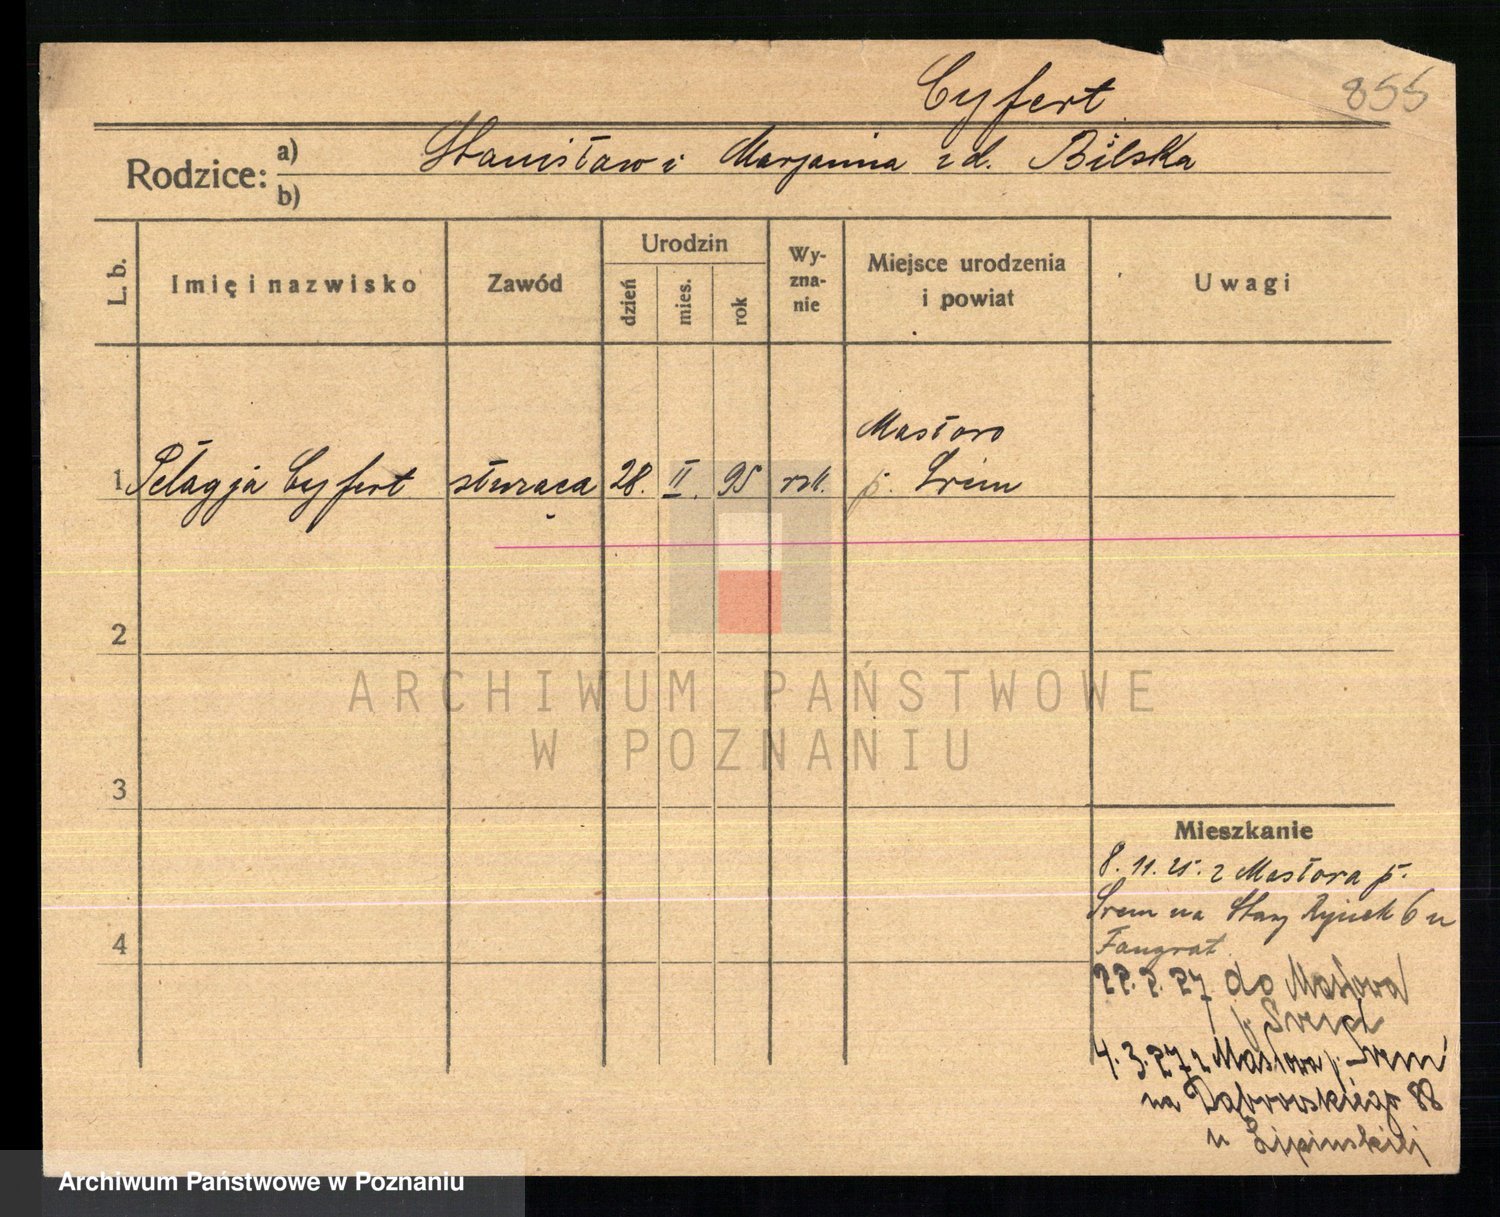 Cyfert
855
Rodzice: a) Stanisław i Marjanna z d. Bilska
b)
L. b.
Imię i nazwisko
Zawód
Urodzin
dzień
mies.
rok
Wy-
zna-
nie
Miejsce urodzenia
i powiat
Uwagi
Masłowo
1 Pelagja Cyfert służąca 28. II. 95 rzk. p. Śrem
2
ARCHIWUM PAŃSTWOWE
W POZNANIU
3
Mieszkanie
8. 11. 25. z Masłowa p.
Śrem na Stary Rynek 6 u
4
22. 2. 27 do Masłowa
p. Śrem
4. 3. 27 z Masłowa p. Śrem
na Dąbrowskiego 88
u Lipinskiej
Archiwum Państwowe w Poznaniu